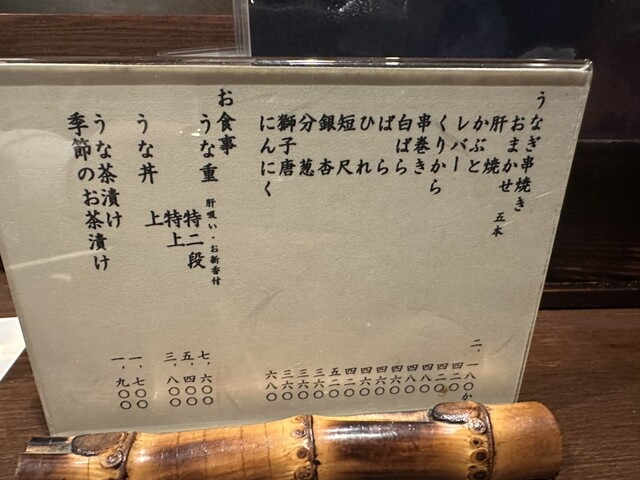 うなぎ串焼き
おまかせ 五本 二、一八〇か
肝焼 四二〇
かぶと 四二〇
レバー 四八〇
くりから 四八〇
串巻き 四六〇
白ばら 四六〇
ばら 四六〇
ひれ 四二〇
短尺 五二〇
銀杏 三六〇
分葱 三六〇
獅子唐 三六〇
にんにく 六八〇
お食事
うな重 肝吸い・お新香付
特二段 七、六〇〇
特上 五、四〇〇
うな丼 上 三、八〇〇
うな茶漬け 一、七〇〇
季節のお茶漬け 一、九〇〇